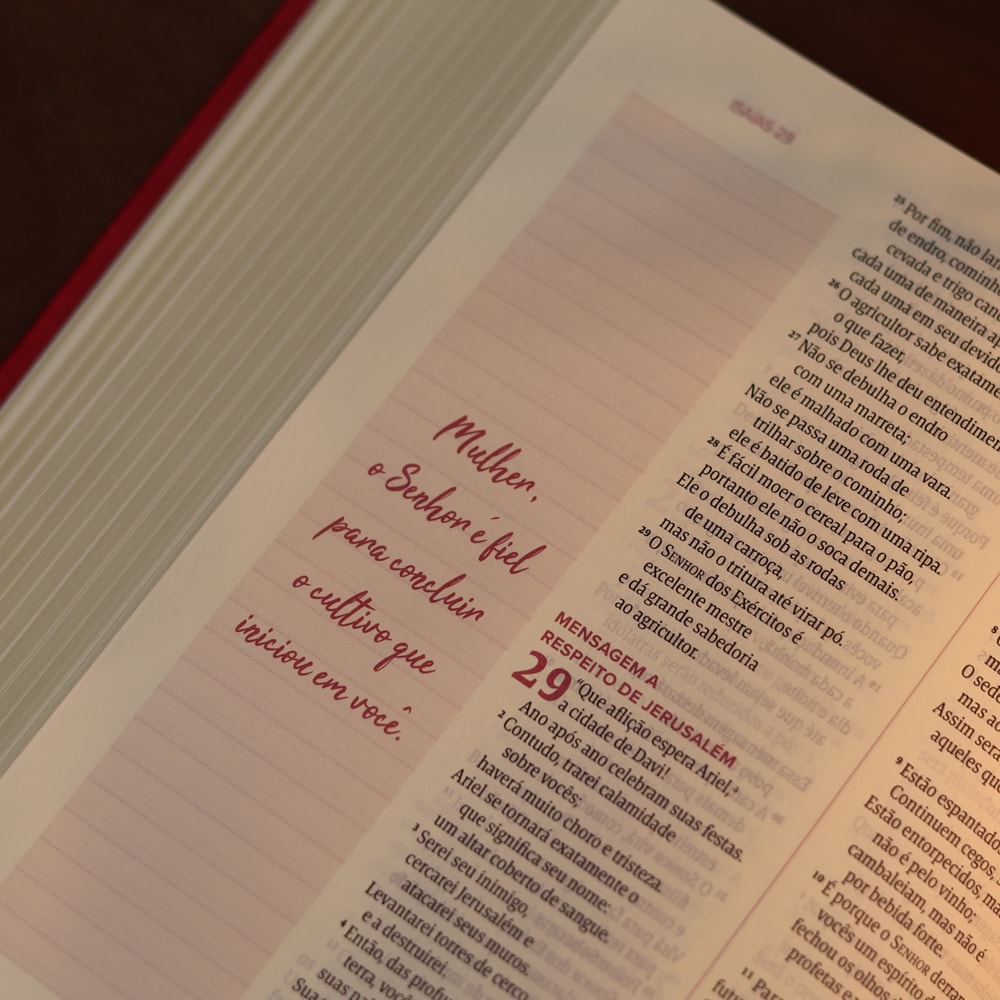 ISAÍAS 29
Mulher,
o Senhor é fiel
para concluir
o cultivo que
iniciou em você.
25 Por fim, não
de endro,
cevada e trigo
cada uma de maneira
cada uma em seu
26 O agricultor sabe
o que fazer,
pois Deus lhe deu
27 Não se debulha o endro
com uma marreta;
ele é malhado com uma vara.
Não se passa uma roda de
trilhar sobre o cominho;
ele é batido de leve com uma ripa.
28 É fácil moer o cereal para o pão,
portanto ele não o soca demais.
Ele o debulha sob as rodas
de uma carroça,
mas não o tritura até virar pó.
29 O SENHOR dos Exércitos é
excelente mestre
e dá grande sabedoria
ao agricultor.
MENSAGEM A
RESPEITO DE JERUSALÉM
29 “Que aflição espera Ariel,
a cidade de Davi!
Ano após ano celebram suas festas.
2 Contudo, trarei calamidade
sobre vocês;
haverá muito choro e tristeza.
Ariel se tornará exatamente o
que significa seu nome:
um altar coberto de sangue.
3 Serei seu inimigo,
cercarei Jerusalém e
atacarei seus muros.
Levantarei torres de cerco
e a destruirei.
4 Então, das
terra,
8
O
mas
Assim
aqueles
9 Estão
Continuem cegos,
Estão entorpecidos,
não é pelo vinho;
cambaleiam, mas não é
por bebida forte.
10 É porque o SENHOR
vocês um espírito
fechou os olhos
profetas e
11